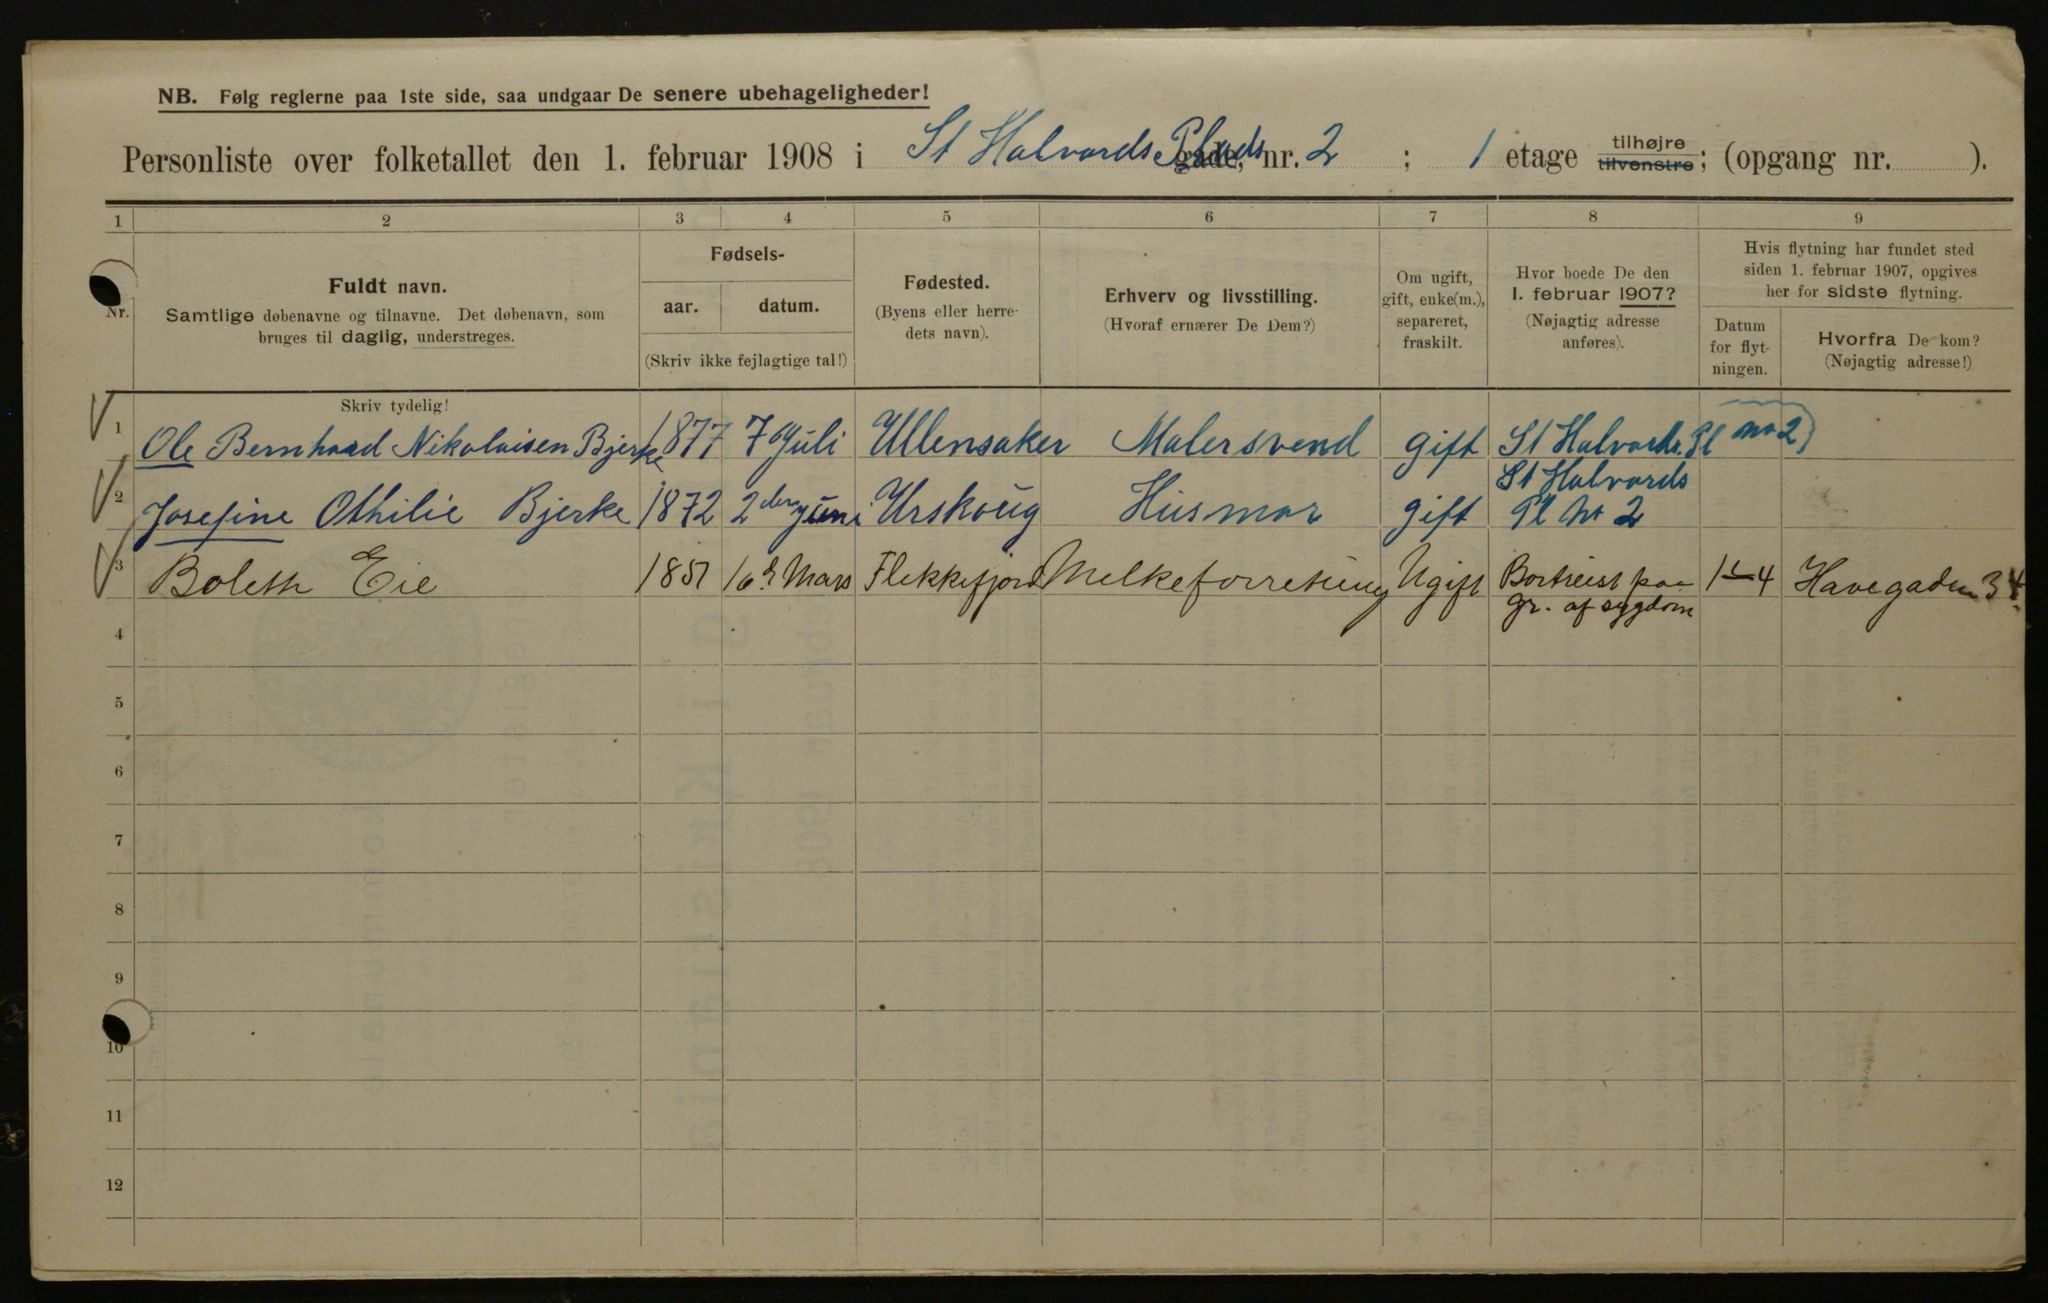 NB. Følg reglerne paa 1ste side, saa undgaar De senere ubehageligheder!
Personliste over folketallet den 1. februar 1908 i St Halvards Plads gade, nr. 2 ; 1 etage tilhøjre tilvenstre; (opgang nr. ).
1 2 3 4 5 6 7 8 9
Nr.
Fuldt navn.
Samtlige døbenavne og tilnavne. Det døbenavn, som
bruges til daglig, understreges.
Skriv tydelig!
Fødsels-
aar. datum.
(Skriv ikke fejlagtige tal!)
Fødested.
(Byens eller herre-
dets navn).
Erhverv og livsstilling.
(Hvoraf ernærer De Dem?)
Om ugift,
gift, enke(m.),
separeret,
fraskilt.
Hvor boede De den
1. februar 1907?
(Nøjagtig adresse
anføres).
Hvis flytning har fundet sted
siden 1. februar 1907, opgives
her for sidste flytning.
Datum
for flyt-
ningen.
Hvorfra De kom?
(Nøjagtig adresse!)
1 Ole Bernhard Nikolaisen Bjerke 1877 7 Juli Ullensaker Malersvend gift St Halvards Pl no 2
2 Josefine Othilie Bjerke 1872 2den Juni Urskoug Husmor gift St Halvards
Pl No 2
3 Boleth Eie 1851 16d Mars Flekkefjord Melkeforretning Ugift Bortreist paa
gr. af sygdom 1-4 Havegaden 34.
4
5
6
7
8
9
10
11
12